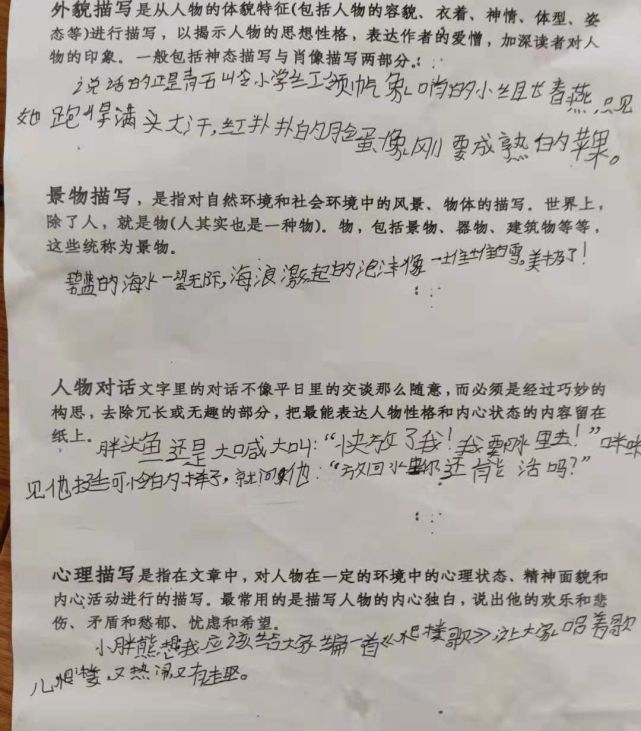 外貌描写是从人物的体貌特征(包括人物的容貌、衣着、神情、体型、姿
态等)进行描写，以揭示人物的思想性格，表达作者的爱憎，加深读者对人
物的印象。一般包括神态描写与肖像描写两部分。
说话的正是青石小学红领巾气象哨的小组长春燕，只见
她跑得满头大汗，红扑扑的脸蛋像刚要成熟的苹果。
景物描写，是指对自然环境和社会环境中的风景、物体的描写。世界上，
除了人，就是物(人其实也是一种物)。物，包括景物、器物、建筑物等等，
这些统称为景物。
碧蓝的海水一望无际，海浪激起的泡沫像一堆堆的雪。美极了！
人物对话文字里的对话不像平日里的交谈那么随意，而必须是经过巧妙的
构思，去除冗长或无趣的部分，把最能表达人物性格和内心状态的内容留在
纸上。
胖头鱼还是大喊大叫：“快放了我！我要水里去！”咪咪
见他挺可怜的样子，就问他：“放回水里你还有能活吗？”
心理描写是指在文章中，对人物在一定的环境中的心理状态、精神面貌和
内心活动进行的描写。最常用的是描写人物的内心独白，说出他的欢乐和悲
伤、矛盾和愁郁、忧虑和希望。
小胖熊想我应该给大家编一首《爬楼歌》让大家唱着歌
儿爬楼，又热闹又有趣。